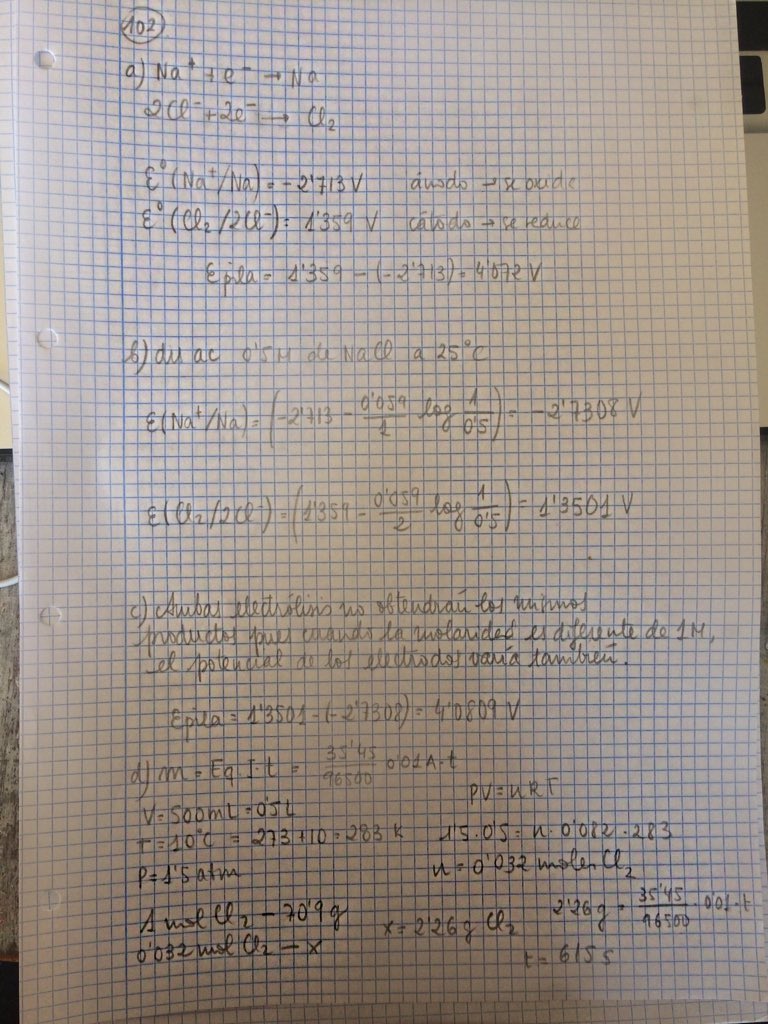 102
a) Na⁺ + e⁻ → Na
2Cl⁻ + 2e⁻ → Cl₂
ε°(Na⁺/Na) = -2'713 V ánodo → se oxida
ε°(Cl₂/2Cl⁻) = 1'359 V cátodo → se reduce
Epila = 1'359 - (-2'713) = 4'072 V
b) du ac 0'5M de NaCl a 25°C
ε(Na⁺/Na) = (-2'713 - 0'059/1 log 1/0'5) = -2'7308 V
ε(Cl₂/2Cl⁻) = (1'359 - 0'059/2 log 1/0'5) = 1'3501 V
c) Ambas electrólisis no obtendrán los mismos
productos pues cuando la molaridad es diferente de 1M,
el potencial de los electrodos varía también.
Epila = 1'3501 - (-2'7308) = 4'0809 V
d) m = Eq·I·t = 35'45/96500 0'01A·t
PV = nRT
V = 500mL = 0'5L
T = 10°C = 273 + 10 = 283 K 1'5·0'5 = n·0'082·283
P = 1'5 atm n = 0'032 moles Cl₂
1 mol Cl₂ — 70'9g x = 2'26g Cl₂ 2'26g = 35'45/96500 · 0'01·t
0'032 mol Cl₂ — x
t = 615 s